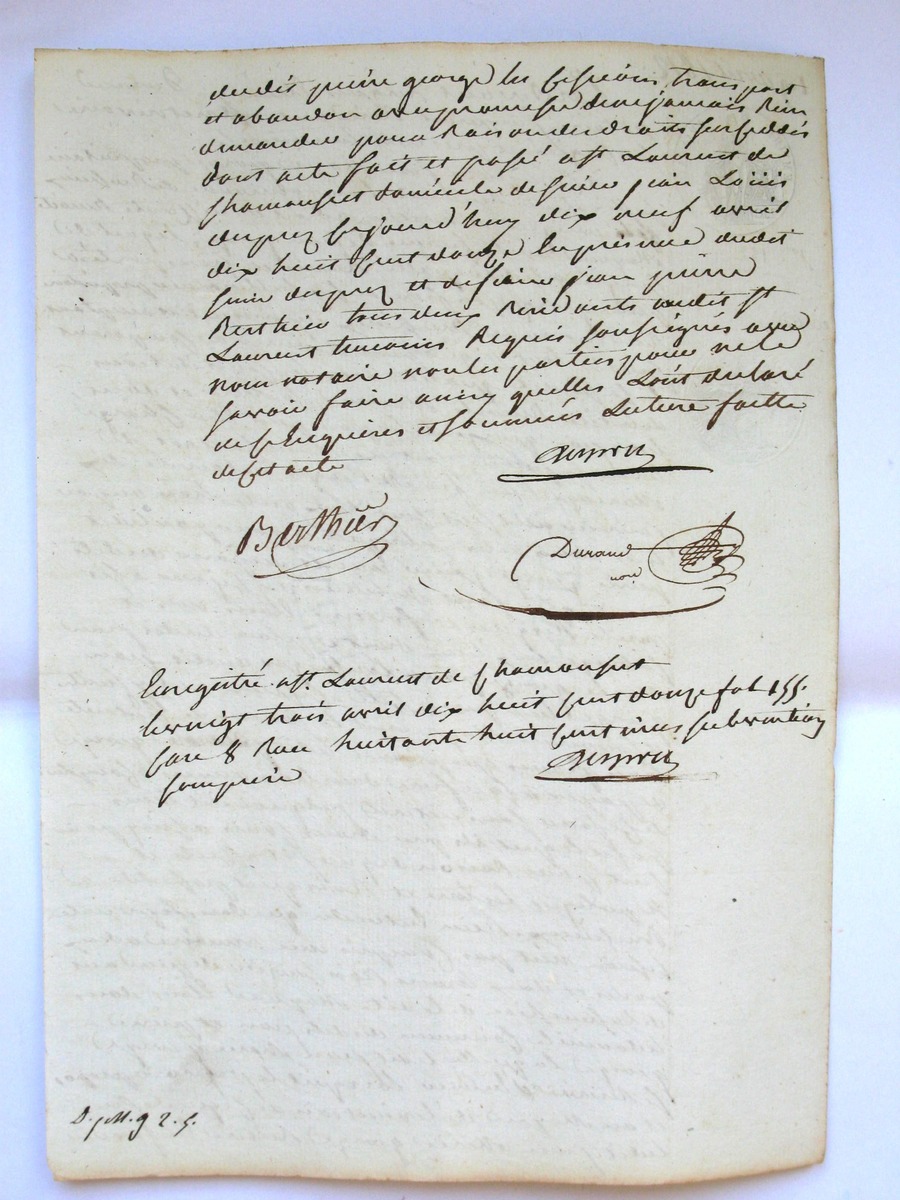 dudit pierre george les cession, transport
et abandon avec promesse de ne jamais Rien
demander pour Raison des droits sus cedés
dont acte fait et passé a St. Laurent de
Chamousset domicile de sieur jean Loüis
desprez cejourd'huy dix neuf avril
dix huit cent douze En présence dudit
sieur desprez et de sieur jean pierre
Berthier tous deux Residants audit St
Laurent temoins Requis soussignés avec
nous notaire non les parties pour ne le
savoir faire ainsy quelles L'ont declaré
de ce Enquieres et sommés Lecture faitte
de cet acte
Desprez
Berthier
Durand
nore
Enregistré a St. Laurent de Chamousset
le vingt trois avril dix huit cent douze fol 155.
case 8 Recu huitante huit centimes subvention
comprise
Desprez